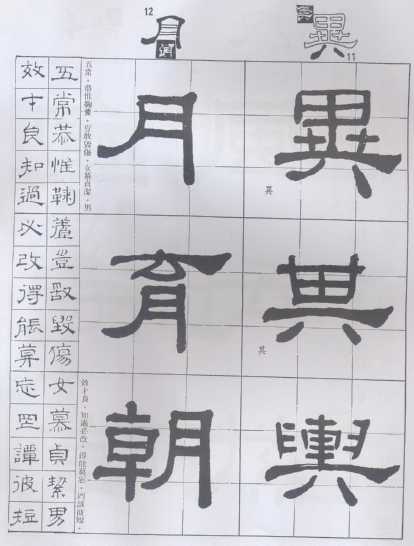 11
異
異
其
輿
異
其
12
月
月
育
朝
五常。恭惟鞠養，豈敢毀傷。女慕貞潔，男
效才良。知過必改，得能莫忘。罔談彼短，
五常恭惟鞠養豈敢毀傷女慕貞絜男
效才良知過必改得能莫忘罔譚彼短